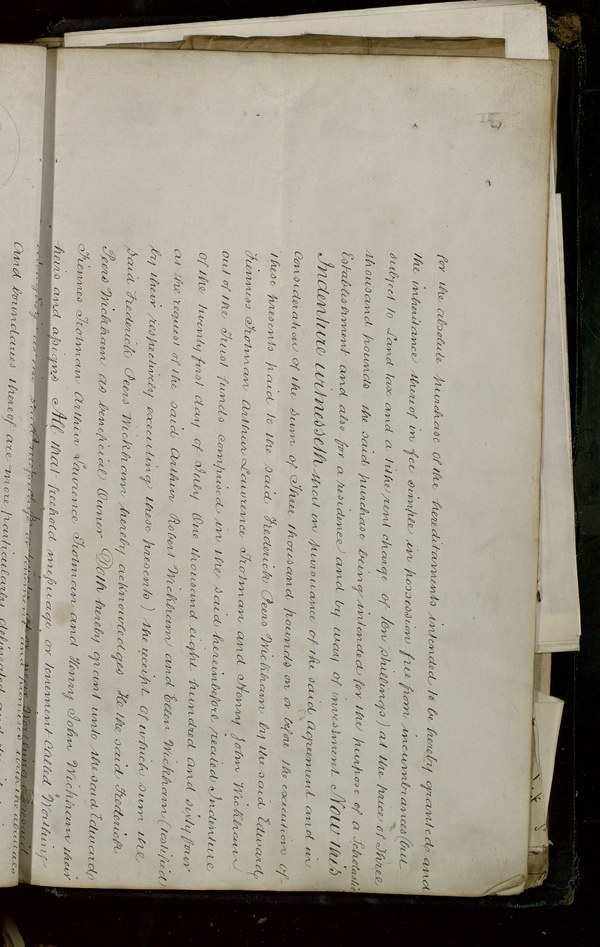 for the absolute purchase of the hereditaments intended to be hereby granted and
the inheritance thereof in fee simple in possession free from incumbrances (but
subject to Land tax and a tithe rent charge of ten shillings) at the price of Three
thousand pounds the said purchase being intended for the purpose of a Scholastic
Establishment and also for a residence and by way of investment Now this
Indenture witnesseth that in pursuance of the said Agreement and in
consideration of the sum of Three thousand pounds on or before the execution of
these presents paid to the said Frederick Peers Wickham by the said Edward
Fiennes Trotman Arthur Lawrence Trotman and Henry John Wickham
out of the Trust funds comprised in the said hereinbefore recited Indenture
of the twenty first day of July One thousand eight hundred and sixty four
at the request of the said Arthur Robert Wickham and Ellen Wickham (testified
by their respectively executing these presents) the receipt of which sum the
said Frederick Peers Wickham hereby acknowledges He the said Frederick
Peers Wickham as beneficial Owner Doth hereby grant unto the said Edward
Fiennes Trotman Arthur Lawrence Trotman and Henry John Wickham their
heirs and assigns All that freehold messuage or tenement called
and premises with the
and boundaries thereof are more particularly delineated and